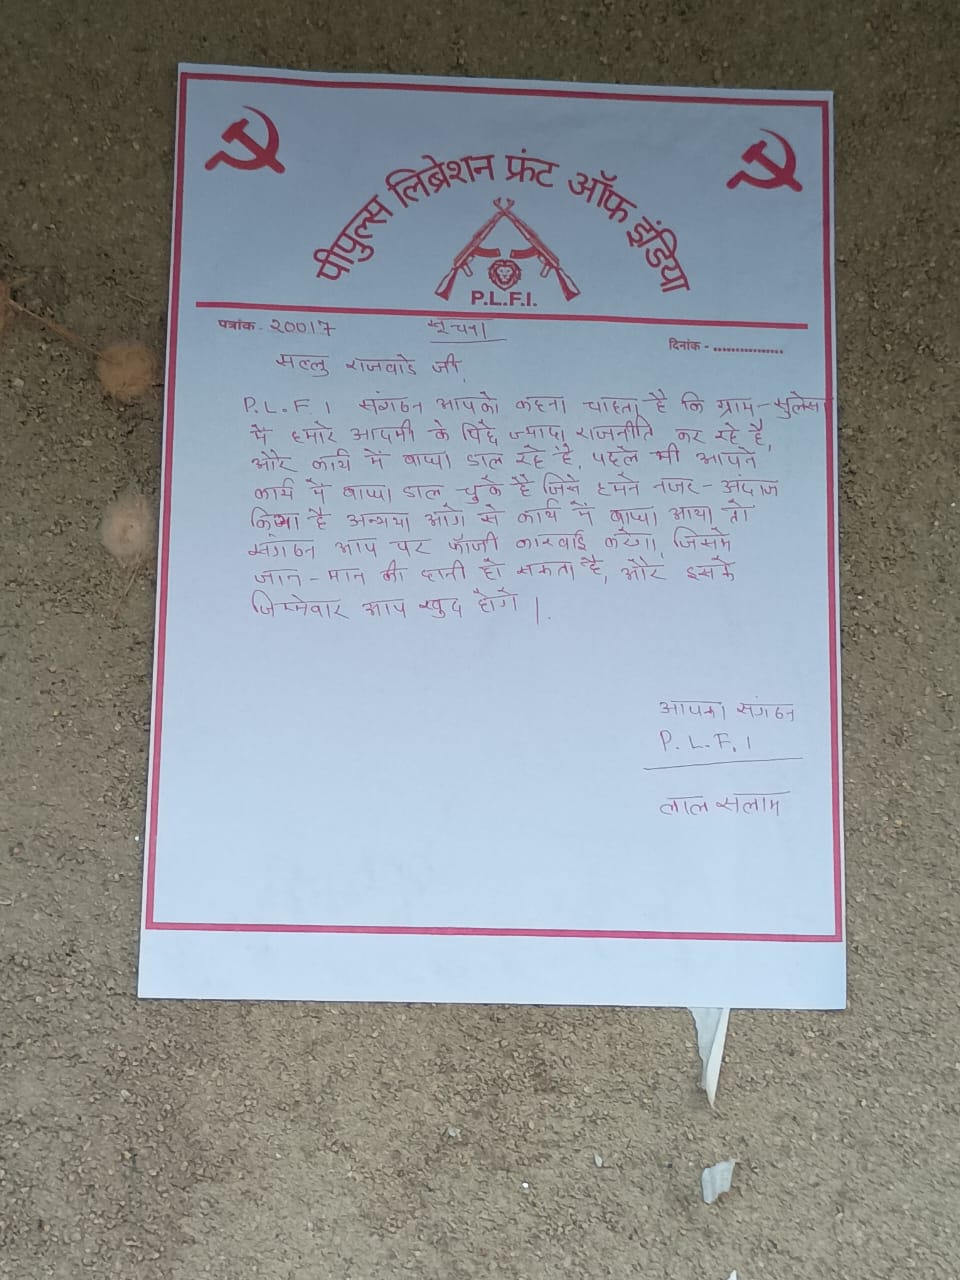 पीपुल्स लिब्रेशन फ्रंट ऑफ इंडिया
P.L.F.I.
पत्रांक - 20017
सूचना
दिनांक - ................
सल्लु राजवाडे जी,
P.L.F.I संगठन आपको कहना चाहता है कि ग्राम -
में हमारे आदमी के पिछे ज्यादा राजनीति कर रहे है,
और कार्य में बाधा डाल रहे है, पहले भी आपने
कार्य में बाधा डाल चुके है जिसे हमने नजर - अंदाज
किया है अन्यथा आगे से कार्य में बाधा आया तो
संगठन आप पर फौजी कारवाई करेगा, जिसमे
जान - मान की हानी हो सकता है, और इसके
जिम्मेवार आप खुद होगे |.
आपका संगठन
P.L.F.I
लाल सलाम